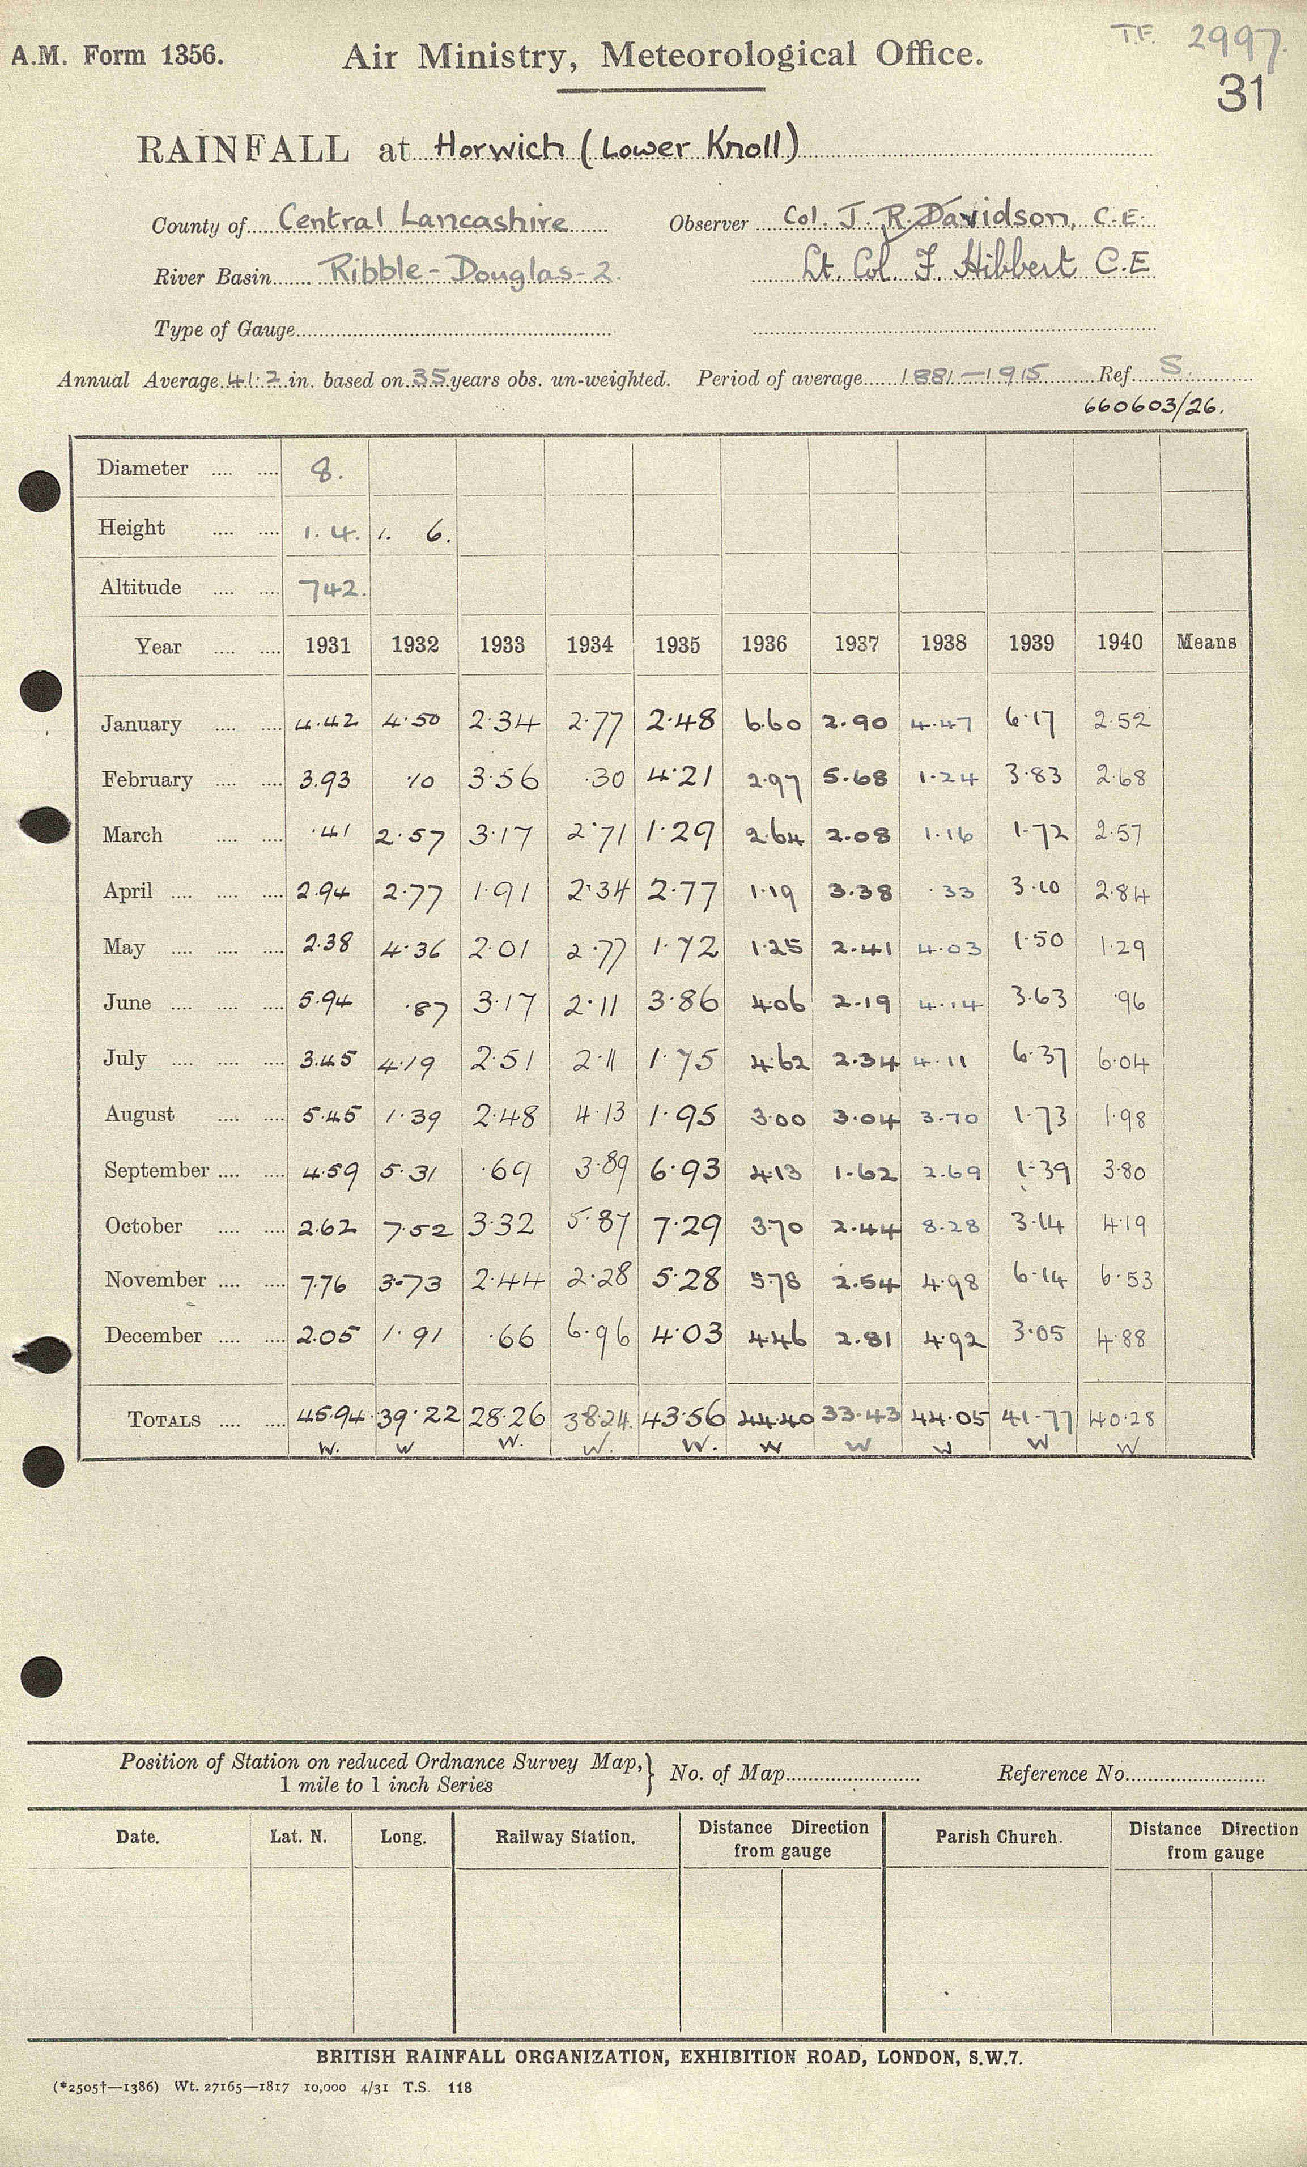 T.F. 2997.
A.M. Form 1356. Air Ministry, Meteorological Office.
31
RAINFALL at Horwich (Lower Knoll)
County of Central Lancashire Observer Col. J. R. Davidson, C.E.
River Basin Ribble-Douglas-2. Lt. Col. F. Hibbert C.E
Type of Gauge
Annual Average 41.2 in. based on 35 years obs. un-weighted. Period of average 1881-1915 Ref. S.
660603/26.
Diameter 8.
Height 1. 4. 1. 6.
Altitude 742.
Year 1931 1932 1933 1934 1935 1936 1937 1938 1939 1940 Means
January 4.42 4.50 2.34 2.77 2.48 6.60 2.90 4.47 6.17 2.52
February 3.93 .10 3.56 .30 4.21 2.97 5.68 1.24 3.83 2.68
March .41 2.57 3.17 2.71 1.29 2.64 2.08 1.16 1.72 2.57
April 2.94 2.77 1.91 2.34 2.77 1.19 3.38 .33 3.10 2.84
May 2.38 4.36 2.01 2.77 1.72 1.25 2.41 4.03 1.50 1.29
June 5.94 .87 3.17 2.11 3.86 4.06 2.19 4.14 3.63 .96
July 3.45 4.19 2.51 2.11 1.75 4.62 2.34 4.11 6.37 6.04
August 5.45 1.39 2.48 4.13 1.95 3.00 3.04 3.70 1.73 1.98
September 4.59 5.31 .69 3.89 6.93 4.13 1.62 2.69 1.39 3.80
October 2.62 7.52 3.32 5.87 7.29 3.70 2.44 8.28 3.14 4.19
November 7.76 3.73 2.44 2.28 5.28 5.78 2.54 4.98 6.14 6.53
December 2.05 1.91 .66 6.96 4.03 4.46 2.81 4.92 3.05 4.88
TOTALS 45.94 39.22 28.26 38.24 43.56 44.40 33.43 44.05 41.77 40.28
W. W W. W. W. W W W W W
Position of Station on reduced Ordnance Survey Map,} No. of Map Reference No.
1 mile to 1 inch Series
Date. Lat. N. Long. Railway Station. Distance Direction from gauge Parish Church. Distance Direction from gauge
BRITISH RAINFALL ORGANIZATION, EXHIBITION ROAD, LONDON, S.W.7.
(*2505†—1386) Wt. 27165—1817 10,000 4/31 T.S. 118